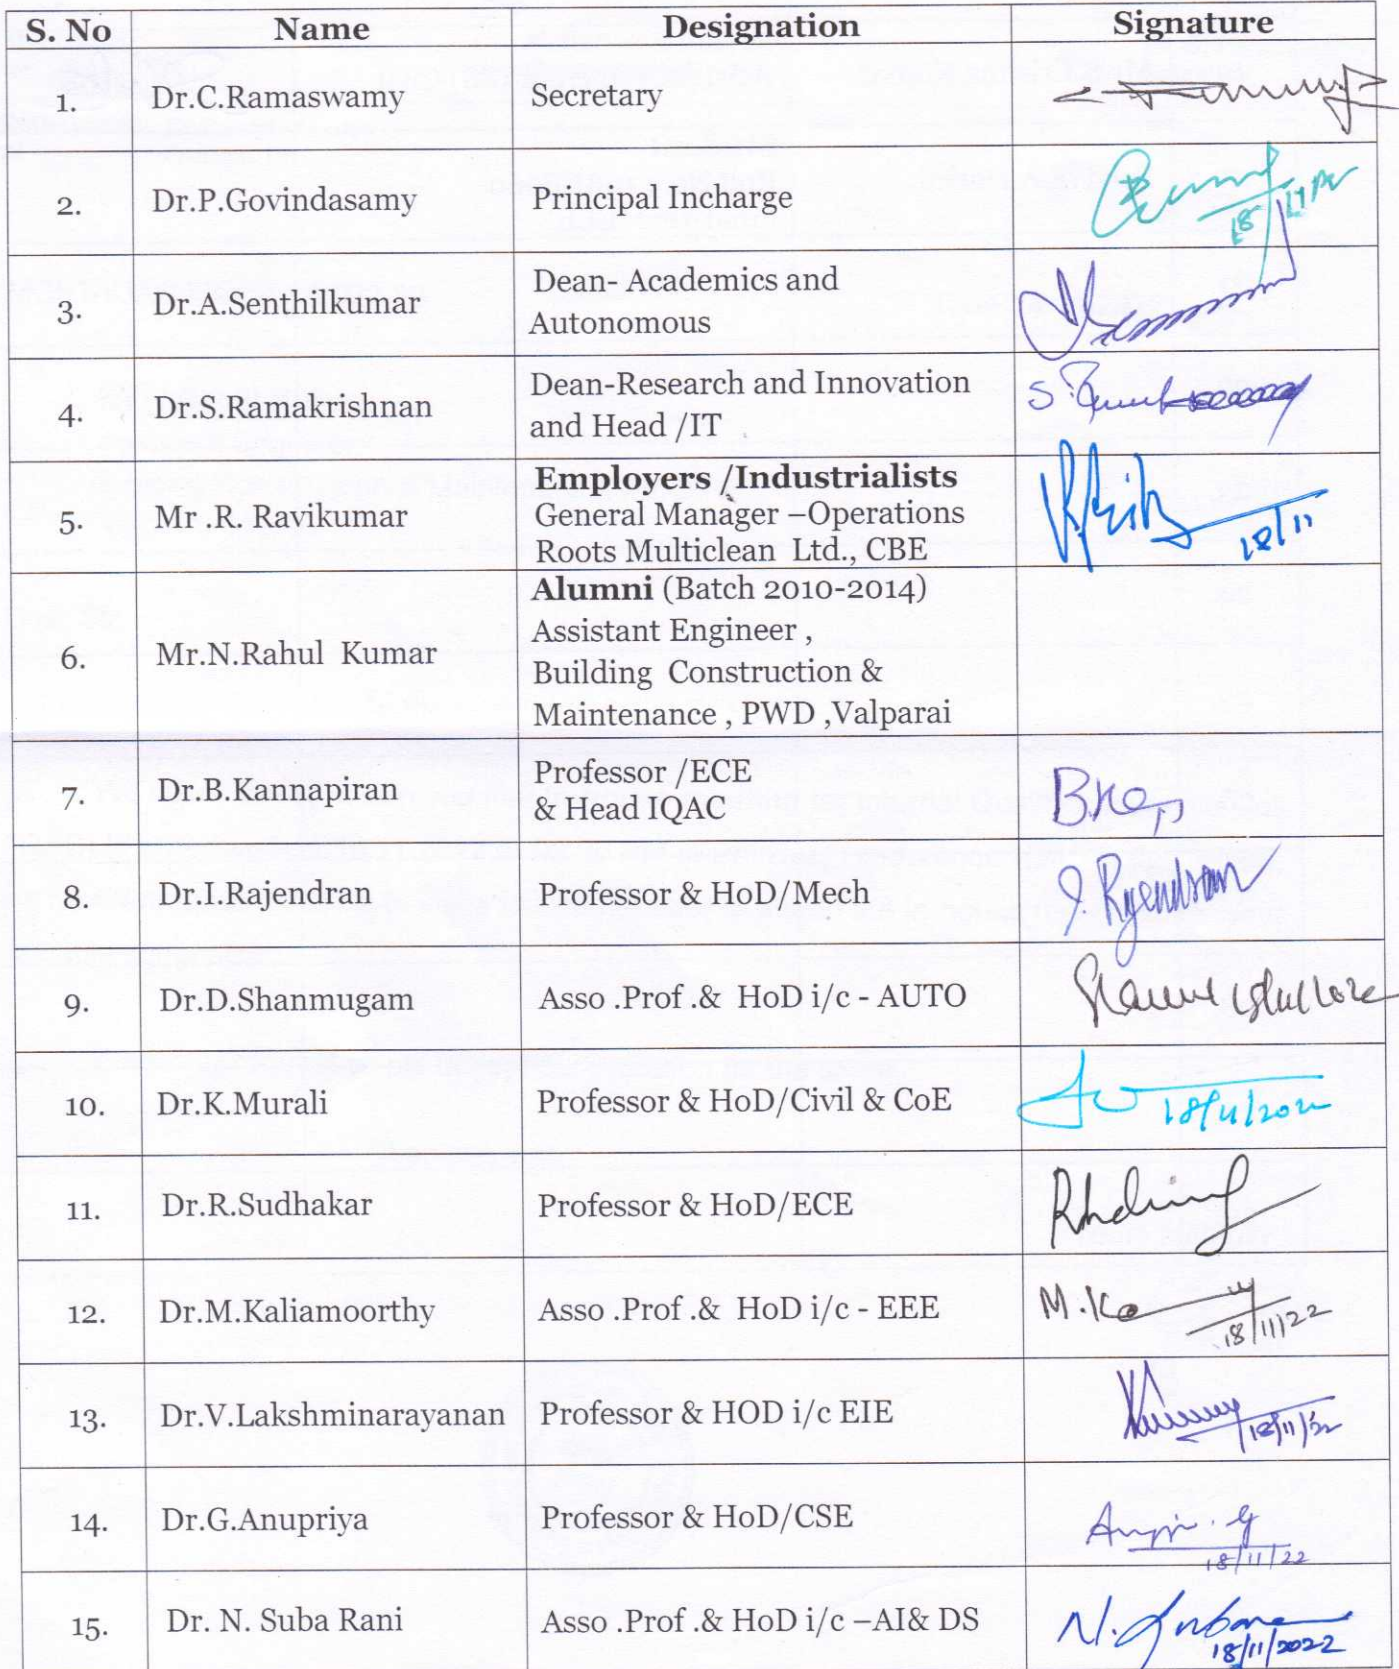 S. No Name Designation Signature
1. Dr.C.Ramaswamy Secretary
2. Dr.P.Govindasamy Principal Incharge
18
3. Dr.A.Senthilkumar Dean- Academics and
Autonomous
4. Dr.S.Ramakrishnan Dean-Research and Innovation
and Head /IT
5. Mr .R. Ravikumar Employers /Industrialists
General Manager –Operations
Roots Multiclean Ltd., CBE
18/11
6. Mr.N.Rahul Kumar Alumni (Batch 2010-2014)
Assistant Engineer ,
Building Construction &
Maintenance , PWD ,Valparai
7. Dr.B.Kannapiran Professor /ECE
& Head IQAC
8. Dr.I.Rajendran Professor & HoD/Mech I. Rajendran
9. Dr.D.Shanmugam Asso .Prof .& HoD i/c - AUTO 18/11/2022
10. Dr.K.Murali Professor & HoD/Civil & CoE 18/11/2022
11. Dr.R.Sudhakar Professor & HoD/ECE
12. Dr.M.Kaliamoorthy Asso .Prof .& HoD i/c - EEE M.Ka
18/11/22
13. Dr.V.Lakshminarayanan Professor & HOD i/c EIE
18/11/22
14. Dr.G.Anupriya Professor & HoD/CSE
18/11/22
15. Dr. N. Suba Rani Asso .Prof .& HoD i/c –AI& DS
18/11/2022